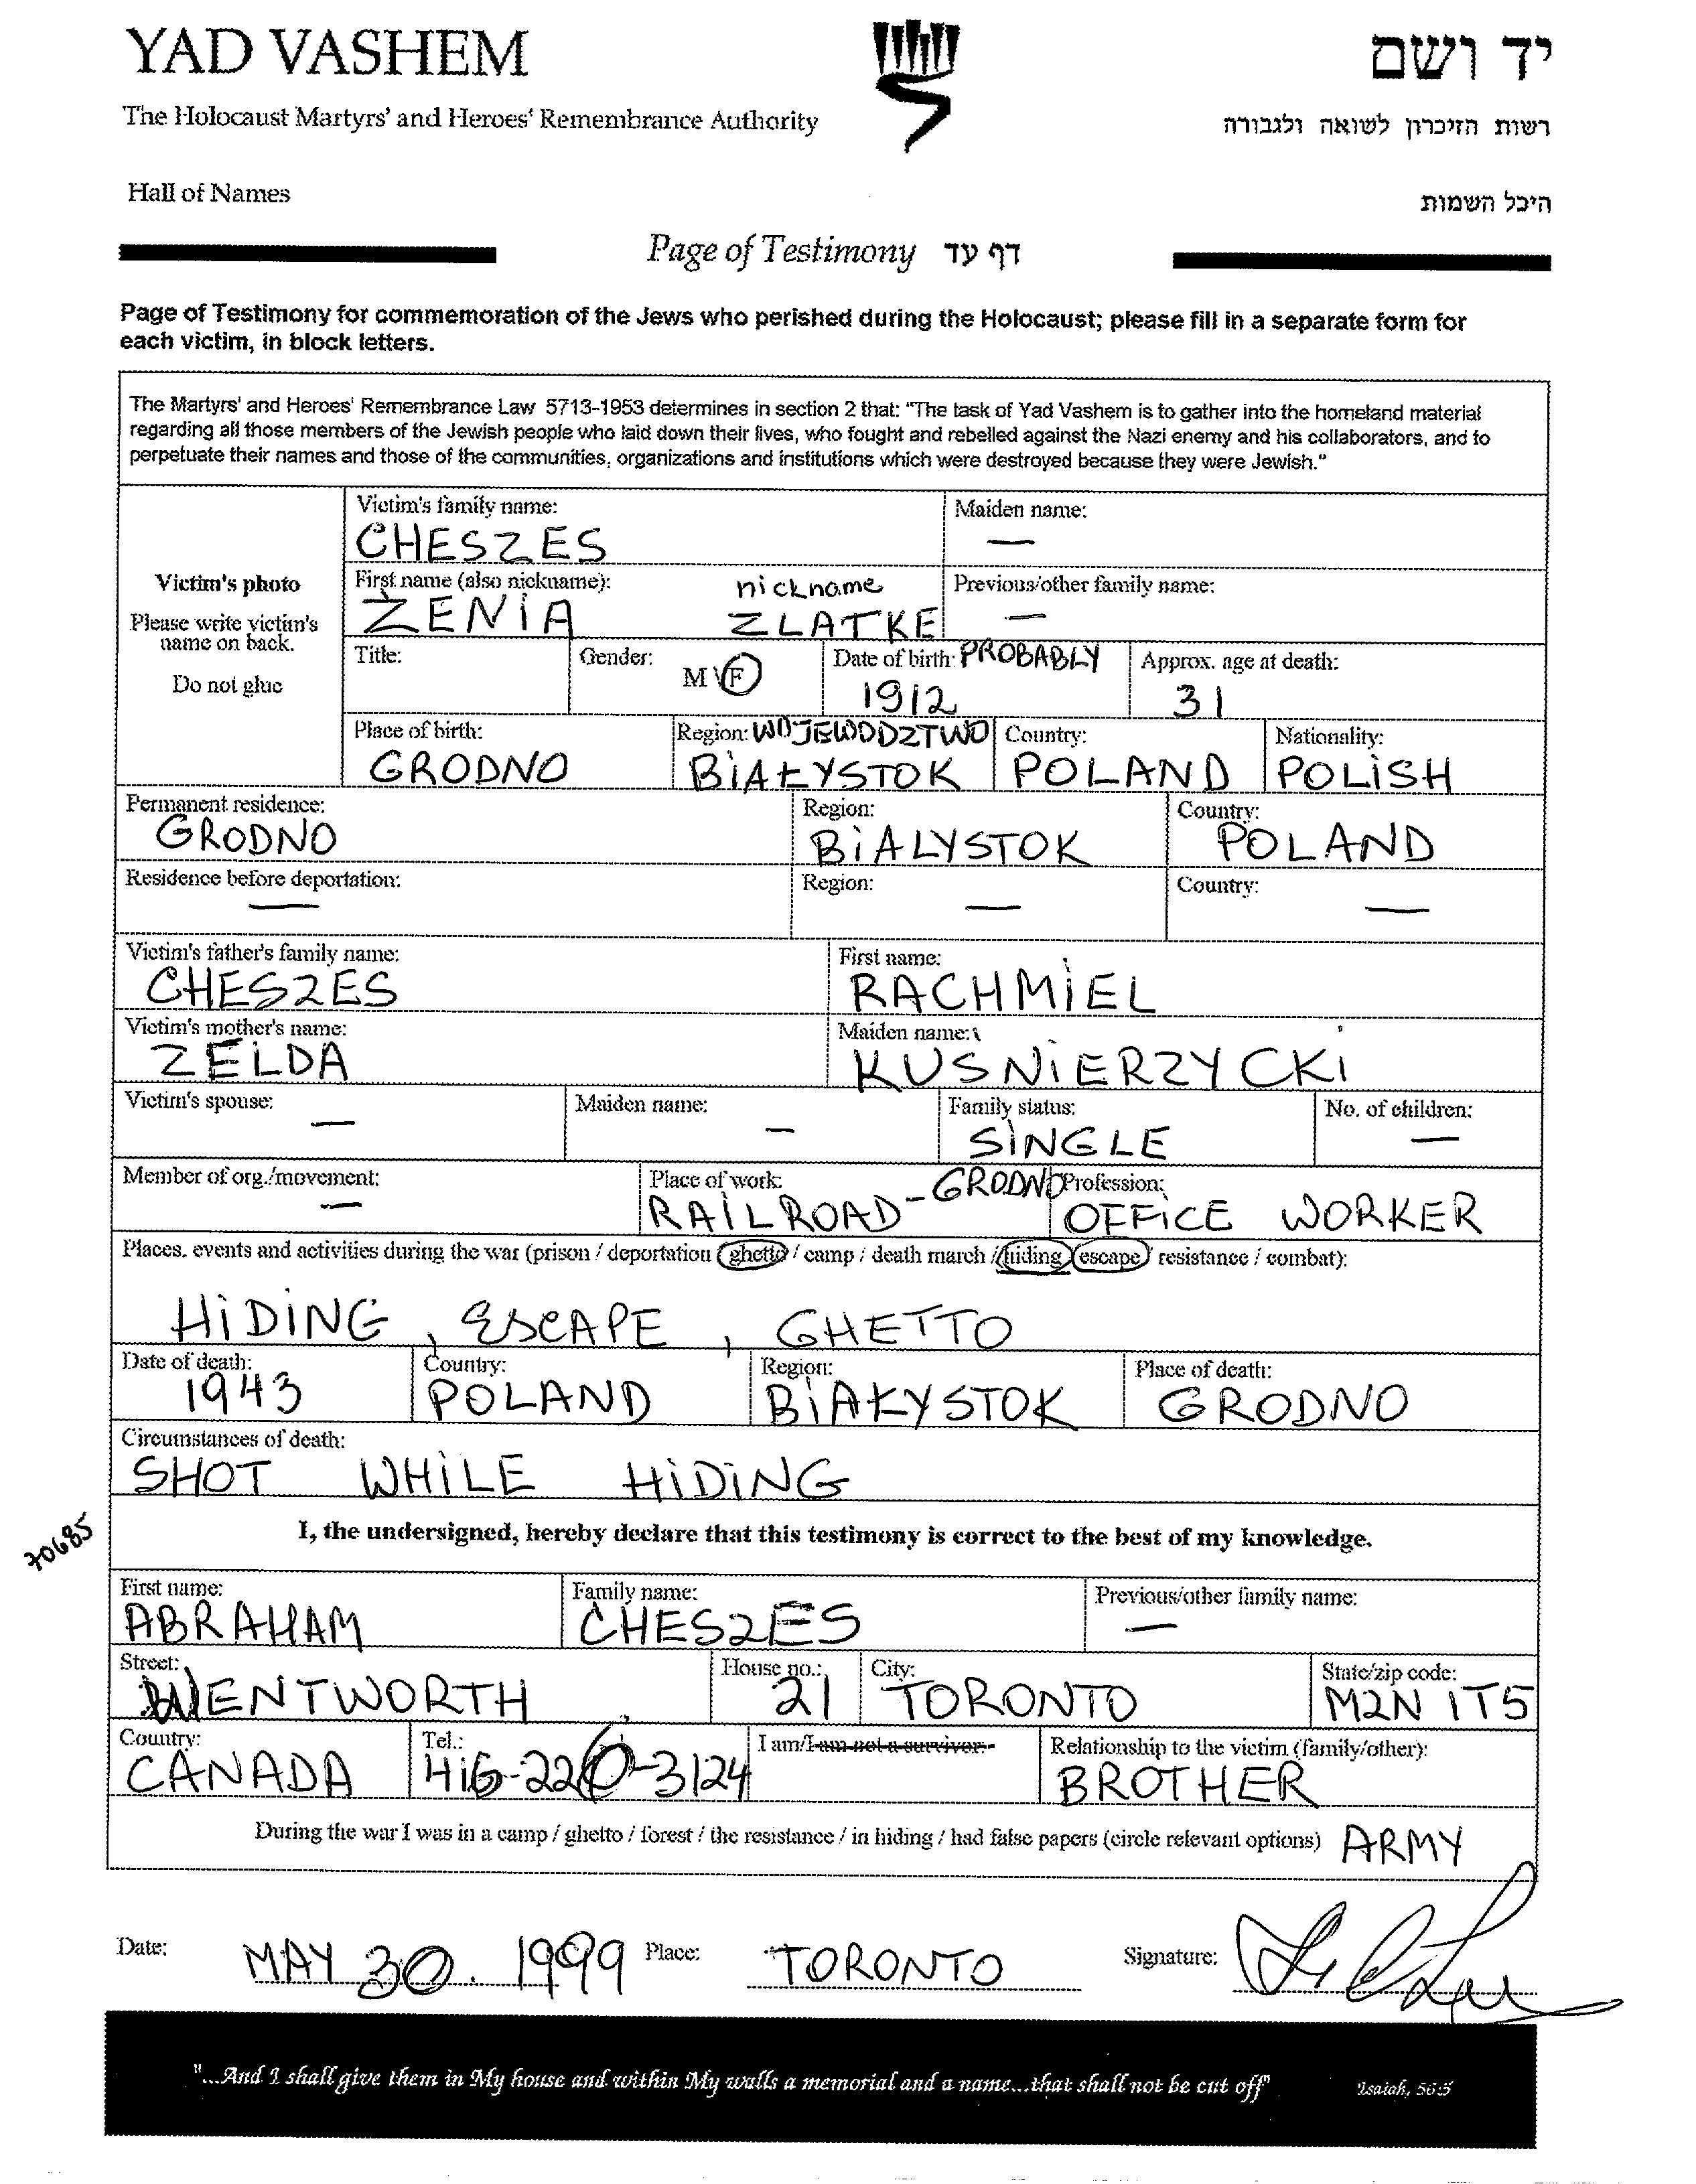 YAD VASHEM
יד ושם
The Holocaust Martyrs' and Heroes' Remembrance Authority
רשות הזיכרון לשואה ולגבורה
Hall of Names
היכל השמות
Page of Testimony דף עד
Page of Testimony for commemoration of the Jews who perished during the Holocaust; please fill in a separate form for
each victim, in block letters.
The Martyrs' and Heroes' Remembrance Law 5713-1953 determines in section 2 that: "The task of Yad Vashem is to gather into the homeland material
regarding all those members of the Jewish people who laid down their lives, who fought and rebelled against the Nazi enemy and his collaborators, and to
perpetuate their names and those of the communities, organizations and institutions which were destroyed because they were Jewish."
Victim's photo
Please write victim's
name on back.
Do not glue
Victim's family name: Maiden name:
CHESZES —
First name (also nickname): nickname Previous/other family name:
ZENIA ZLATKE —
Title: Gender: M \ F Date of birth: PROBABLY Approx. age at death:
1912 31
Place of birth: Region: WOJEWODZTWO Country: Nationality:
GRODNO BIAŁYSTOK POLAND POLISH
Permanent residence: Region: Country:
GRODNO BIALYSTOK POLAND
Residence before deportation: Region: Country:
— — —
Victim's father's family name: First name:
CHESZES RACHMIEL
Victim's mother's name: Maiden name:
ZELDA KUSNIERZYCKI
Victim's spouse: Maiden name: Family status: No. of children:
— — SINGLE —
Member of org./movement: Place of work: Profession:
— RAILROAD - GRODNO OFFICE WORKER
Places, events and activities during the war (prison / deportation / ghetto / camp / death march / hiding / escape / resistance / combat):
HIDING, ESCAPE, GHETTO
Date of death: Country: Region: Place of death:
1943 POLAND BIAŁYSTOK GRODNO
Circumstances of death:
SHOT WHILE HIDING
70685
I, the undersigned, hereby declare that this testimony is correct to the best of my knowledge.
First name: Family name: Previous/other family name:
ABRAHAM CHESZES —
Street: House no.: City: State/zip code:
WENTWORTH 21 TORONTO M2N 1T5
Country: Tel.: I am/I am not a survivor. Relationship to the victim (family/other):
CANADA 416-226-3124 BROTHER
During the war I was in a camp / ghetto / forest / the resistance / in hiding / had false papers (circle relevant options) ARMY
Date: MAY 30. 1999 Place: TORONTO Signature:
"...And I shall give them in My house and within My walls a memorial and a name...that shall not be cut off" Isaiah, 56:5